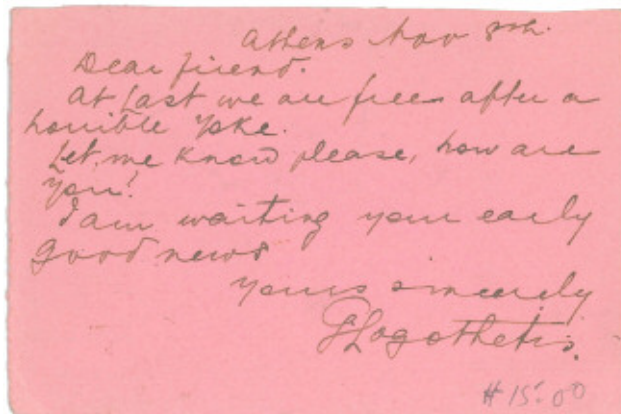 Athens Nov 8th.
Dear friend.
At last we are free after a
horrible yoke.
Let me know please, how are
you?
I am waiting your early
good news
yours sincerely
GLogothetis.
# 15.00